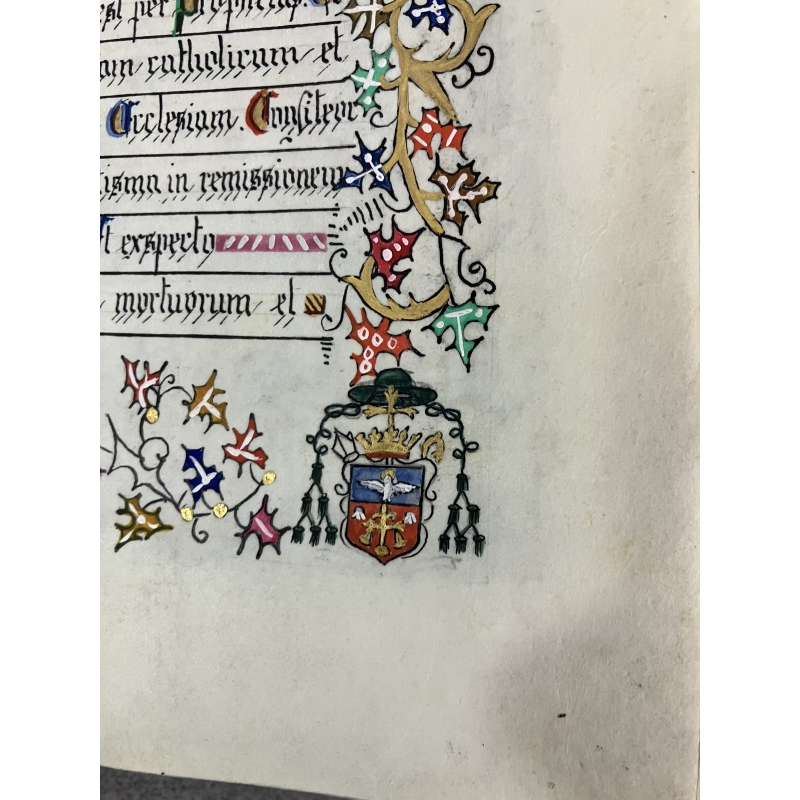 est per Prophetas. Et
am catholicam et
Ecclesiam. Confiteor
tisma in remissionem
Et exspecto
mortuorum et